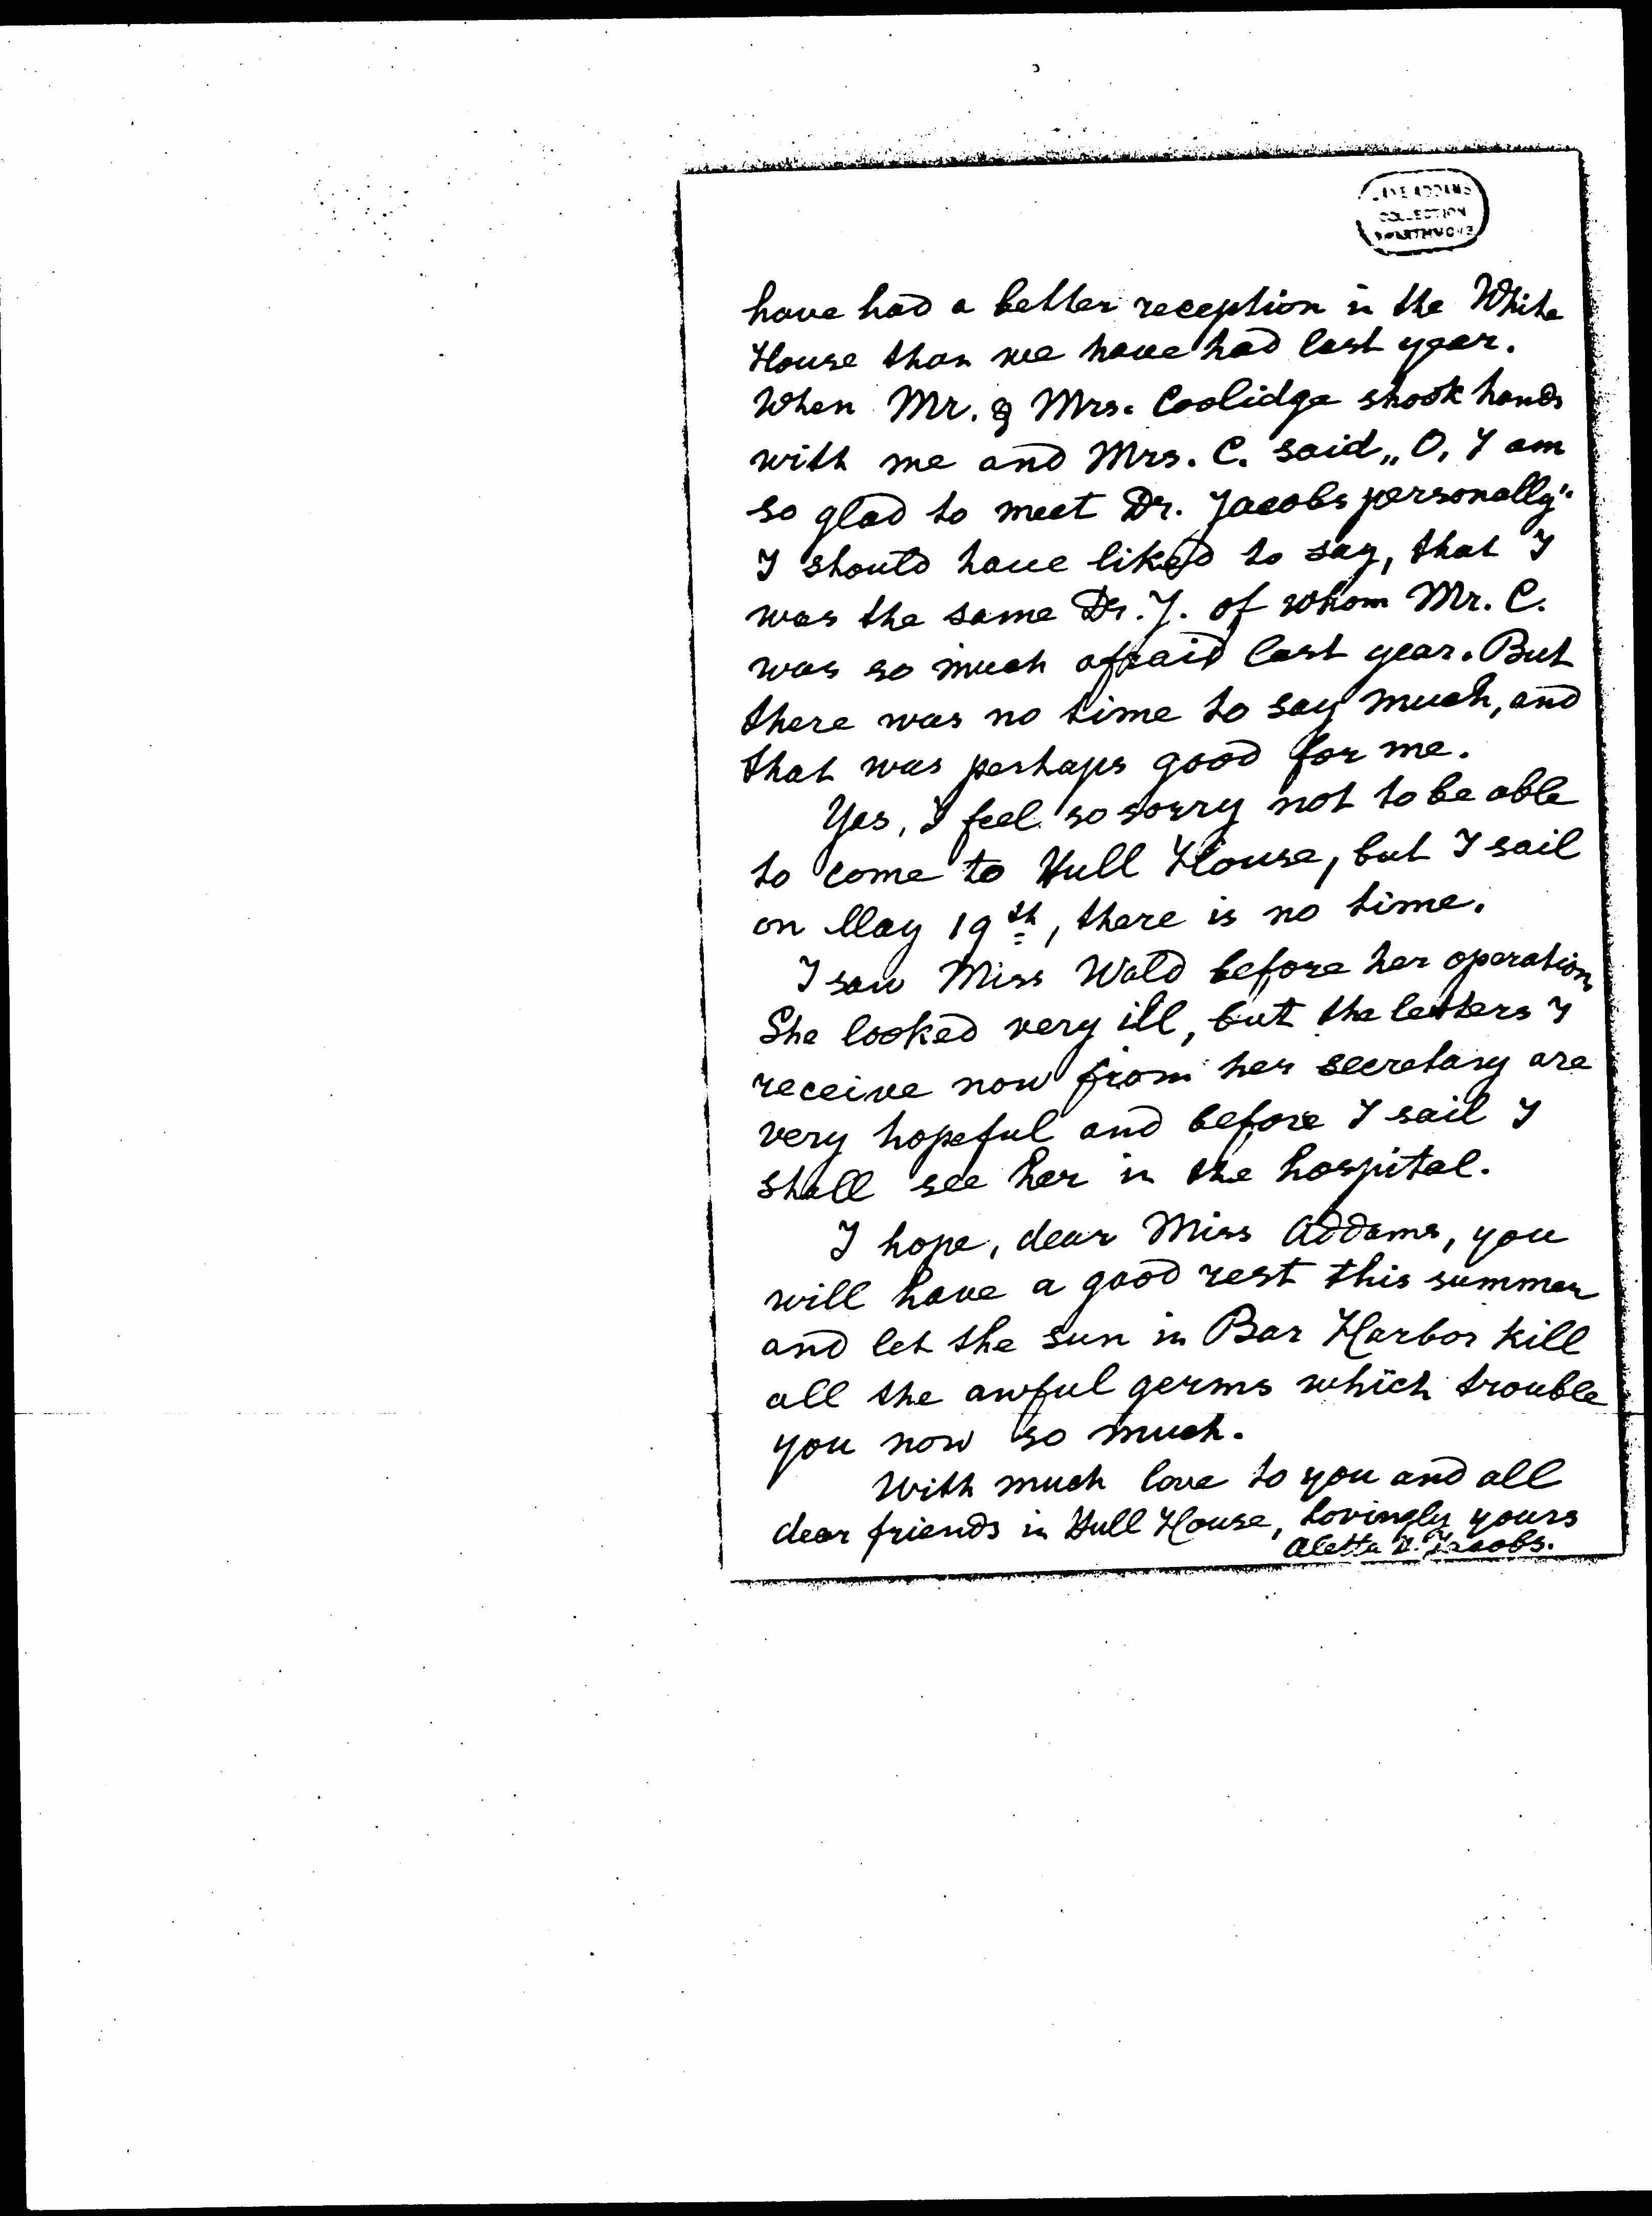 JANE ADDAMS
COLLECTION
SWARTHMORE
have had a better reception in the White
House than we have had last year.
When Mr. & Mrs. Coolidge shook hands
with me and Mrs. C. said „O, I am
so glad to meet Dr. Jacobs personally"
I should have liked to say, that I
was the same Dr. J. of whom Mr. C.
was so much afraid last year. But
there was no time to say much, and
that was perhaps good for me.
Yes, I feel so sorry not to be able
to come to Hull House, but I sail
on May 19th, there is no time.
I saw Miss Wald before her operation
She looked very ill, but the letters I
receive now from her secretary are
very hopeful and before I sail I
shall see her in the hospital.
I hope, dear Miss Addams, you
will have a good rest this summer
and let the sun in Bar Harbor kill
all the awful germs which trouble
you now so much.
With much love to you and all
dear friends in Hull House, lovingly yours
Aletta H. Jacobs.